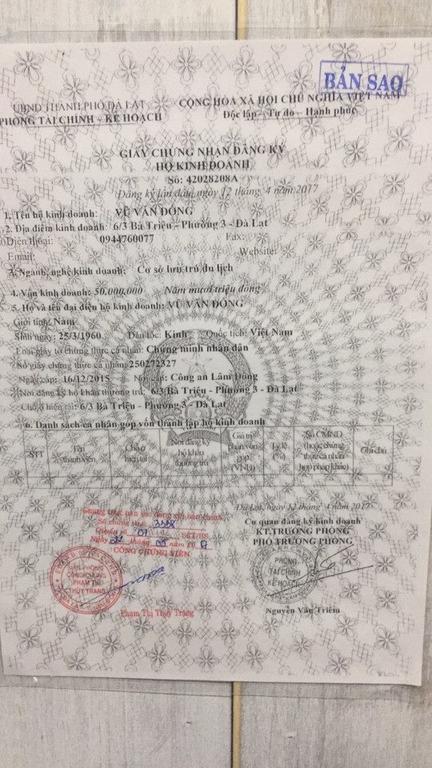 BẢN SAO
UBND THÀNH PHỐ ĐÀ LẠT
PHÒNG TÀI CHÍNH - KẾ HOẠCH
CỘNG HÒA XÃ HỘI CHỦ NGHĨA VIỆT NAM
Độc lập - Tự do - Hạnh phúc
GIẤY CHỨNG NHẬN ĐĂNG KÝ
HỘ KINH DOANH
Số: 42028208A
Đăng ký lần đầu, ngày 12 tháng 4 năm 2017
1. Tên hộ kinh doanh: VŨ VĂN ĐÔNG
2. Địa điểm kinh doanh: 6/3 Bà Triệu - Phường 3 - Đà Lạt
Điện thoại: 0944760077 Fax:
Email: Website:
3. Ngành, nghề kinh doanh: Cơ sở lưu trú du lịch
4. Vốn kinh doanh: 50.000.000 Năm mươi triệu đồng
5. Họ và tên đại diện hộ kinh doanh: VŨ VĂN ĐÔNG
Giới tính: Nam
Sinh ngày: 25/3/1960 Dân tộc: Kinh Quốc tịch: Việt Nam
Loại giấy tờ chứng thực cá nhân: Chứng minh nhân dân
Số giấy chứng thực cá nhân: 250272327
Ngày cấp: 16/12/2015 Nơi cấp: Công an Lâm Đồng
Nơi đăng ký hộ khẩu thường trú: 6/3 Bà Triệu - Phường 3 - Đà Lạt
Chỗ ở hiện tại: 6/3 Bà Triệu - Phường 3 - Đà Lạt
6. Danh sách cá nhân góp vốn thành lập hộ kinh doanh
STT
Tên thành viên
Chỗ ở hiện tại
Nơi đăng ký hộ khẩu thường trú
Giá trị phần vốn góp (VNĐ)
Tỷ lệ (%)
Ghi chú
Đà Lạt, ngày 12 tháng 4 năm 2017
Cơ quan đăng ký kinh doanh
KT.TRƯỞNG PHÒNG
PHÓ TRƯỞNG PHÒNG
Số chứng thực
SCT/BS
CÔNG CHỨNG VIÊN
PHÒNG
TÀI CHÍNH
KẾ HOẠCH
Phạm Thị Thùy Trang
Nguyễn Văn Triêm